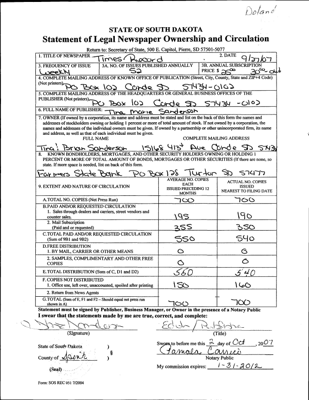 Doland
STATE OF SOUTH DAKOTA
Statement of Legal Newspaper Ownership and Circulation
Return to: Secretary of State, 500 E. Capitol, Pierre, SD 57501-5077
1. TITLE OF NEWSPAPER Times Record 2. DATE 9/27/07
3. FREQUENCY OF ISSUE Weekly 3A. NO. OF ISSUES PUBLISHED ANNUALLY 52 3B. ANNUAL SUBSCRIPTION PRICE: $
4. COMPLETE MAILING ADDRESS OF KNOWN OFFICE OF PUBLICATION (Street, City, County, State and ZIP+4 Code) (Not printers)
PO Box 102 Conde SD 57434-0102
5. COMPLETE MAILING ADDRESS OF THE HEADQUARTERS OR GENERAL BUSINESS OFFICES OF THE
PUBLISHER (Not printers) PO Box 102 Conde SD 57434-0102
6. FULL NAME OF PUBLISHER: Tina Marie Sanderson
7. OWNER (If owned by a corporation, its name and address must be stated and list on the back of this form the names and
addresses of stockholders owning or holding 1 percent or more of total amount of stock. If not owned by a corporation, the
names and addresses of the individual owners must be given. If owned by a partnership or other unincorporated firm, its name
and address, as well as that of each individual must be given.
FULL NAME COMPLETE MAILING ADDRESS
Tina & Brian Sanderson 15168 415th Ave Conde SD
8. KNOWN BONDHOLDERS, MORTGAGES, AND OTHER SECURITY HOLDERS OWNING OR HOLDING 1
PERCENT OR MORE OF TOTAL AMOUNT OF BONDS, MORTGAGES OR OTHER SECURITIES (If there are none, so
state. If more space is needed, list on back of this form.
Farmers State Bank PO Box 128 Turton SD 57477
9. EXTENT AND NATURE OF CIRCULATION
AVERAGE NO. COPIES EACH ISSUED PRECEDING 12 MONTHS
ACTUAL NO. COPIES ISSUED NEAREST TO FILING DATE
A. TOTAL NO. COPIES (Net Press Run) 700 700
B. PAID AND/OR REQUESTED CIRCULATION
1. Sales through dealers and carriers, street vendors and
counter sales. 195 190
2. Mail Subscription
(Paid and or requested) 355 350
C. TOTAL PAID AND/OR REQUESTED CIRCULATION
(Sum of 9B1 and 9B2) 550 540
D. FREE DISTRIBUTION
1. BY MAIL, CARRIER OR OTHER MEANS 0 0
2. SAMPLES, COMPLIMENTARY AND OTHER FREE
COPIES 0 0
E. TOTAL DISTRIBUTION (Sum of C, D1 and D2) 550 540
F. COPIES NOT DISTRIBUTED
1. Office use, left over, unaccounted, spoiled after printing 150 160
2. Return from News Agents
G. TOTAL (Sum of E, F1 and F2 - Should equal net press run
shown in A) 700 700
Statement must be signed by Publisher, Business Manager, or Owner in the presence of a Notary Public
I swear that the statements made by me are true, correct, and complete:
(Signature) (Title)
State of South Dakota )
County of Spink ) §
(Seal)
Sworn to before me this 2 day of Oct, 2007
Notary Public
My commission expires: 1-31-2012
Form: SOS REC 051 7/2004